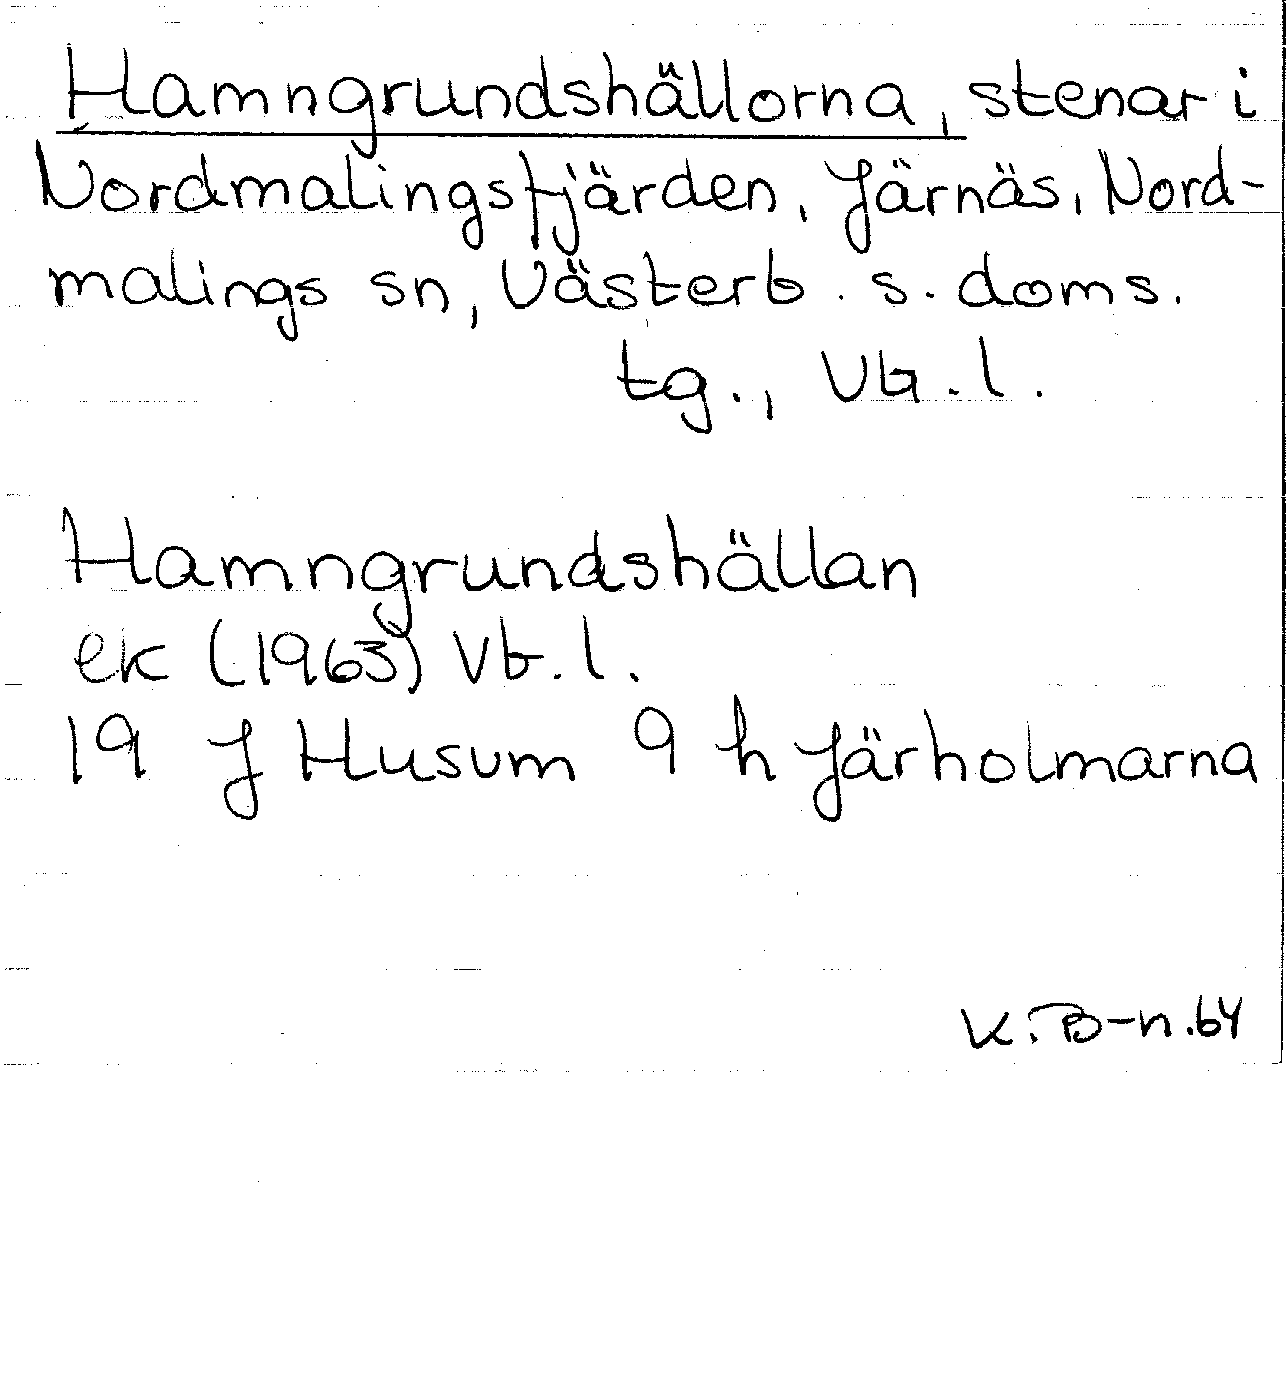 Hamngrundshällorna, stenar i
Nordmalingsfjärden, Järnäs, Nord-
malings sn, Västerb. s. doms.
tg., Vb. l.
Hamngrundshällan
ek (1963) Vb. l.
19 J Husum 9 h Järholmarna
K. B-n. 64